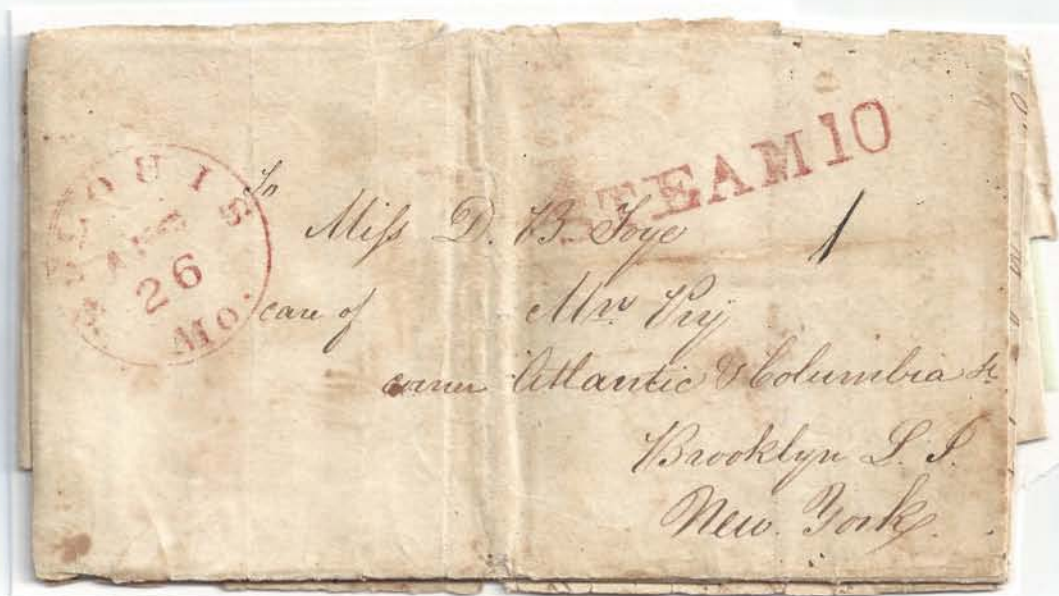 ST LOUIS
AUG
26
Mo.
STEAM 10
To
Miſs D. B. Foye
1
care of Mr.
corner Atlantic & Columbia St
Brooklyn L. I.
New. York.